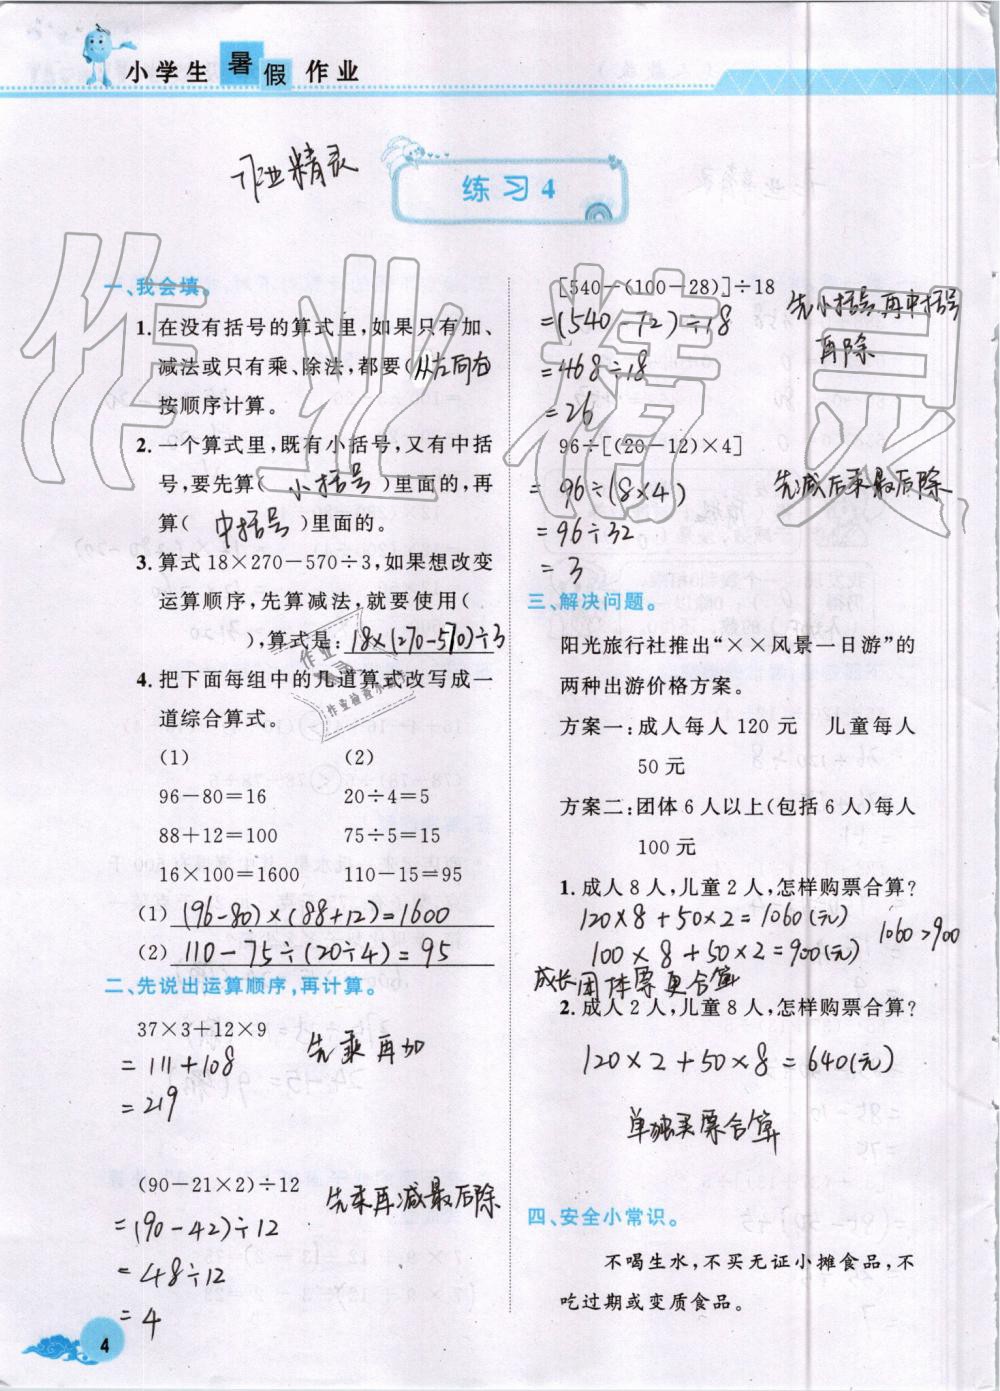 小学生暑假作业
作业精灵
练习4
一、我会填。
1.在没有括号的算式里,如果只有加、
减法或只有乘、除法,都要(从左向右
按顺序计算。
2.一个算式里,既有小括号,又有中括
号,要先算( 小括号 )里面的,再
算( 中括号 )里面的。
3.算式18×270-570÷3,如果想改变
运算顺序,先算减法,就要使用(
),算式是: 18×(270-570)÷3
4.把下面每组中的几道算式改写成一
道综合算式。
(1) (2)
96-80=16 20÷4=5
88+12=100 75÷5=15
16×100=1600 110-15=95
(1) (96-80)×(88+12)=1600
(2) 110-75÷(20÷4)=95
二、先说出运算顺序,再计算。
37×3+12×9
=111+108 先乘再加
=219
(90-21×2)÷12
=(90-42)÷12 先乘再减最后除
=48÷12
=4
4
[540-(100-28)]÷18
=(540-72)÷18 先小括号再中括号
再除
=468÷18
=26
96÷[(20-12)×4]
=96÷(8×4) 先减后乘最后除
=96÷32
=3
三、解决问题。
阳光旅行社推出“××风景一日游”的
两种出游价格方案。
方案一:成人每人120元 儿童每人
50元
方案二:团体6人以上(包括6人)每人
100元
1.成人8人,儿童2人,怎样购票合算?
120×8+50×2=1060(元)
100×8+50×2=900(元) 1060>900
成长团体票更合算
2.成人2人,儿童8人,怎样购票合算?
120×2+50×8=640(元)
单独买票合算
四、安全小常识。
不喝生水,不买无证小摊食品,不
吃过期或变质食品。
作业精灵